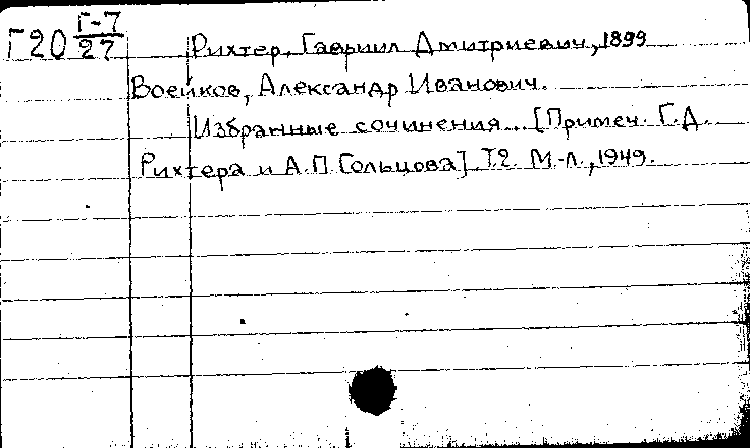 Г20 Г-7/27
Рихтер, Гавриил Дмитриевич, 1899
Воейков, Александр Иванович.
Избранные сочинения... [Примеч. Г.Д.
Рихтера и А.П. Гольцова] Т.2. М.-Л., 1949.